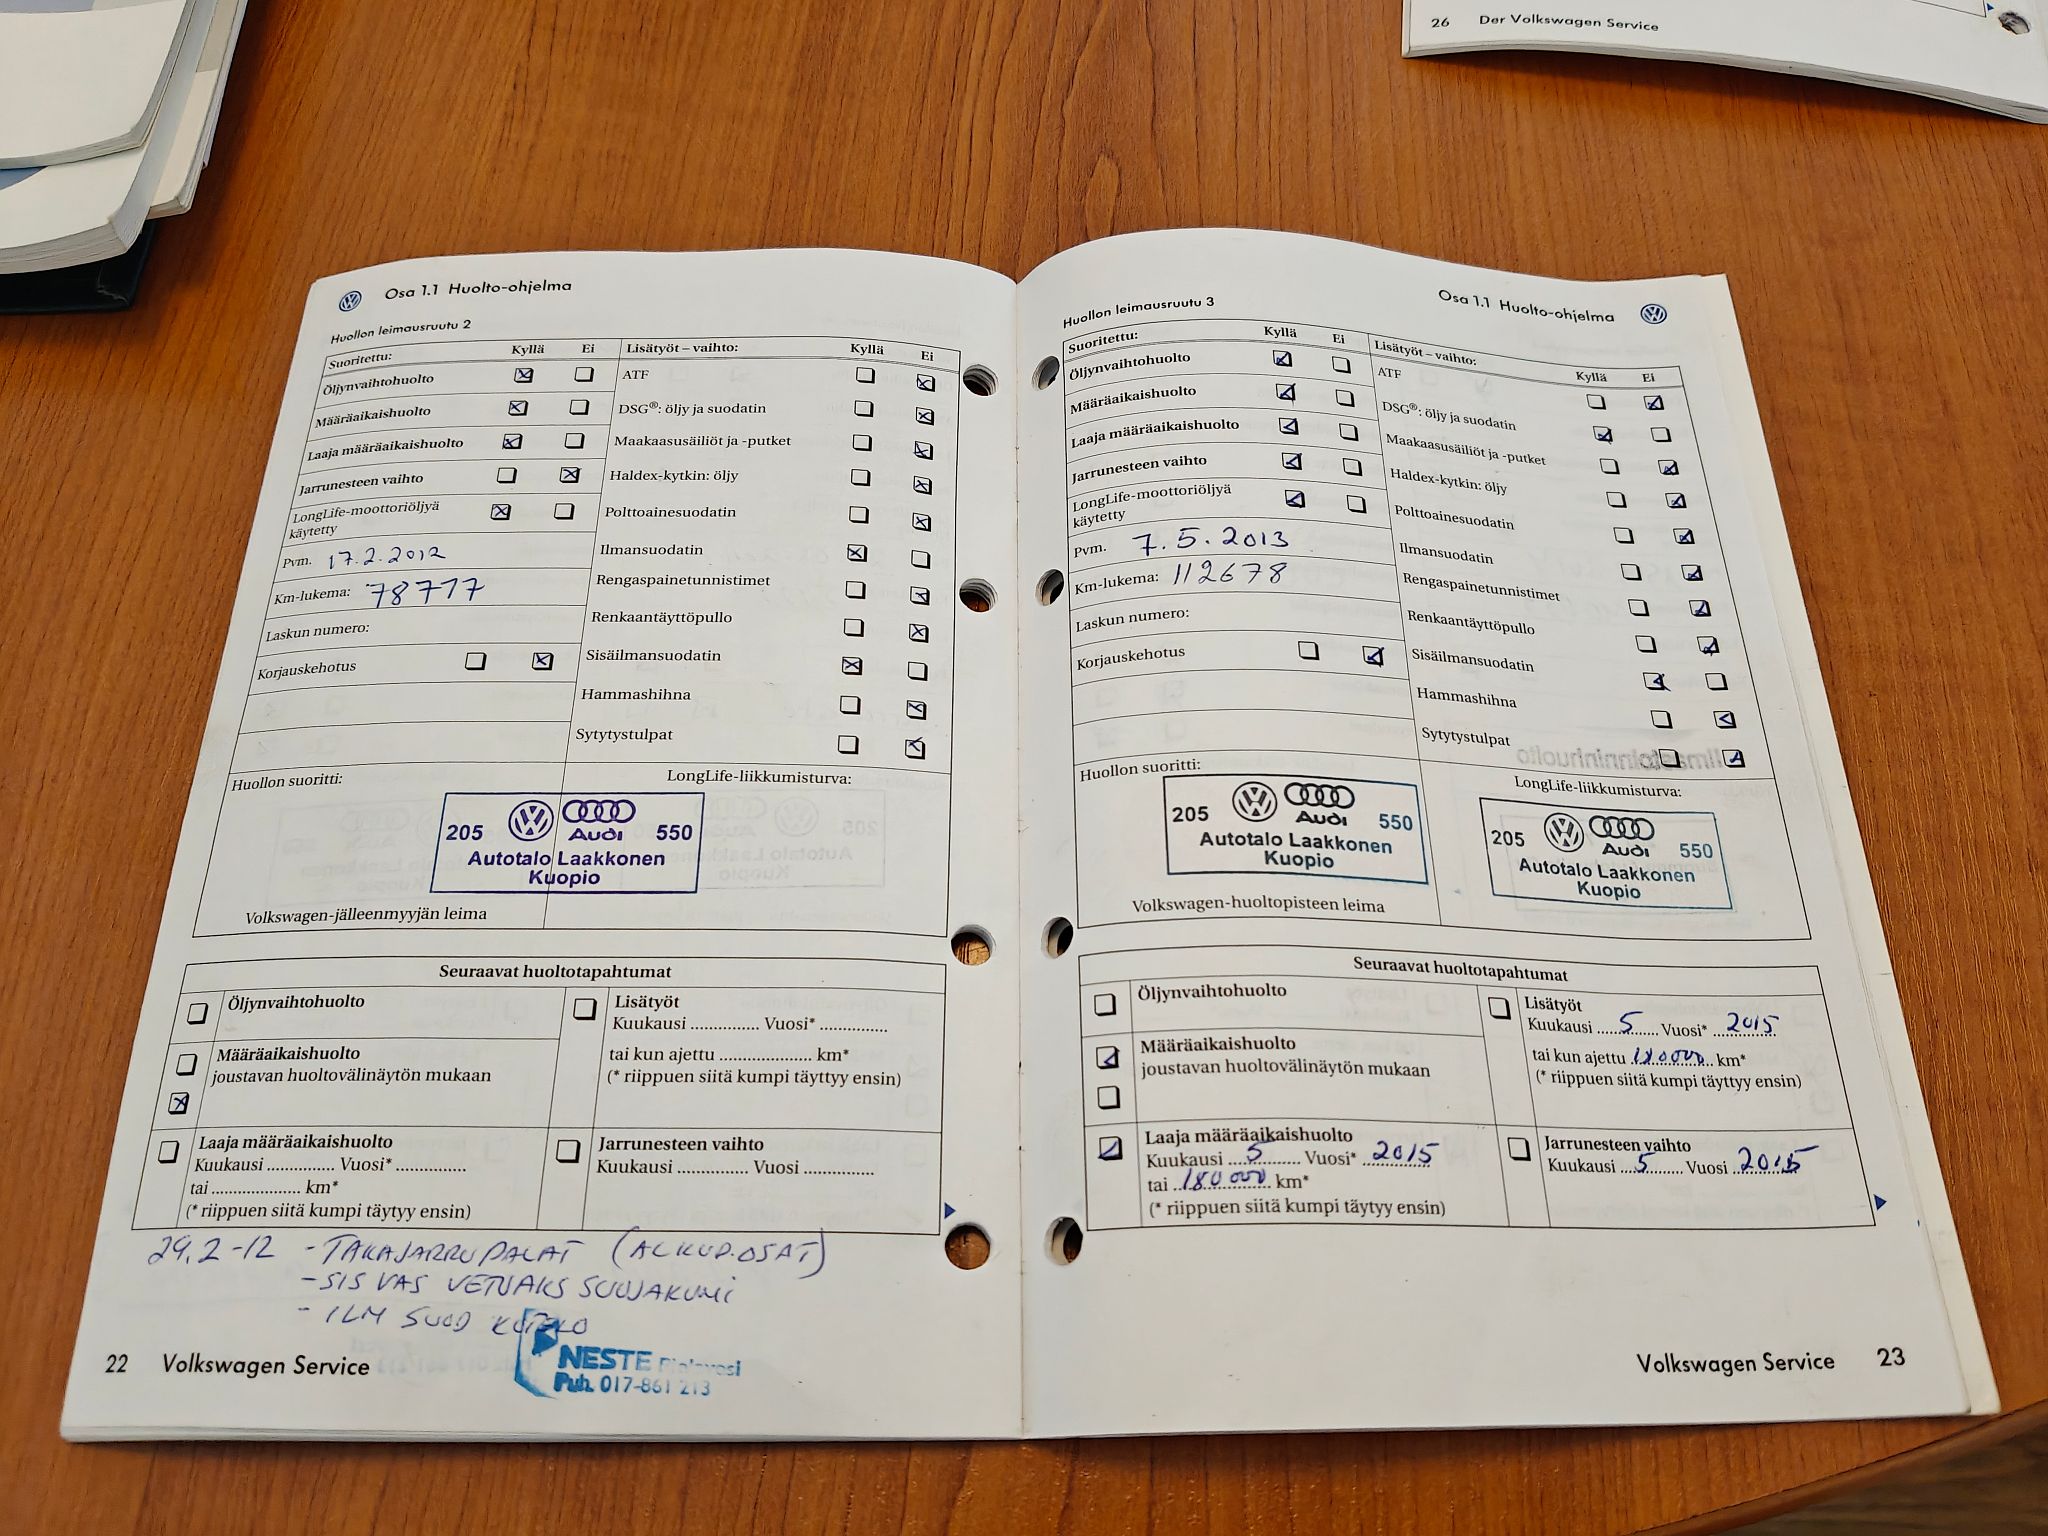 26 Der Volkswagen Service
Osa 1.1 Huolto-ohjelma
Huollon leimausruutu 2
Suoritettu: Kyllä Ei Lisätyöt – vaihto: Kyllä Ei
Öljynvaihtohuolto ATF
Määräaikaishuolto DSG®: öljy ja suodatin
Laaja määräaikaishuolto Maakaasusäiliöt ja -putket
Jarrunesteen vaihto Haldex-kytkin: öljy
LongLife-moottoriöljyä
käytetty
Polttoainesuodatin
Pvm. 17.2.2012 Ilmansuodatin
Km-lukema: 78717 Rengaspainetunnistimet
Laskun numero: Renkaantäyttöpullo
Korjauskehotus Sisäilmansuodatin
Hammashihna
Sytytystulpat
Huollon suoritti: LongLife-liikkumisturva:
205 Audi 550
Autotalo Laakkonen
Kuopio
Volkswagen-jälleenmyyjän leima
Seuraavat huoltotapahtumat
Öljynvaihtohuolto
Määräaikaishuolto
joustavan huoltovälinäytön mukaan
Laaja määräaikaishuolto
Kuukausi ............... Vuosi* ...............
tai .................... km*
(* riippuen siitä kumpi täytyy ensin)
Lisätyöt
Kuukausi ............... Vuosi* ...............
tai kun ajettu .................... km*
(* riippuen siitä kumpi täyttyy ensin)
Jarrunesteen vaihto
Kuukausi ............... Vuosi ...............
29.2-12 - TAKAJARRUPALAT (ALKUP.OSAT)
- SIS VAS VETOAKS SUOJAKUMI
- ILM SUOD KOTELO
NESTE
Puh. 017-861 213
22 Volkswagen Service
Osa 1.1 Huolto-ohjelma
Huollon leimausruutu 3
Suoritettu: Kyllä Ei Lisätyöt – vaihto: Kyllä Ei
Öljynvaihtohuolto ATF
Määräaikaishuolto DSG®: öljy ja suodatin
Laaja määräaikaishuolto Maakaasusäiliöt ja -putket
Jarrunesteen vaihto Haldex-kytkin: öljy
LongLife-moottoriöljyä
käytetty
Polttoainesuodatin
Pvm. 7.5.2013 Ilmansuodatin
Km-lukema: 112678 Rengaspainetunnistimet
Laskun numero: Renkaantäyttöpullo
Korjauskehotus Sisäilmansuodatin
Hammashihna
Sytytystulpat
Huollon suoritti: LongLife-liikkumisturva:
205 Audi 550
Autotalo Laakkonen
Kuopio
205 Audi 550
Autotalo Laakkonen
Kuopio
Volkswagen-huoltopisteen leima
Seuraavat huoltotapahtumat
Öljynvaihtohuolto
Määräaikaishuolto
joustavan huoltovälinäytön mukaan
Laaja määräaikaishuolto
Kuukausi 5 Vuosi* 2015
tai 180 000 km*
(* riippuen siitä kumpi täytyy ensin)
Lisätyöt
Kuukausi 5 Vuosi* 2015
tai kun ajettu 180000 km*
(* riippuen siitä kumpi täyttyy ensin)
Jarrunesteen vaihto
Kuukausi 5 Vuosi 2015
Volkswagen Service 23